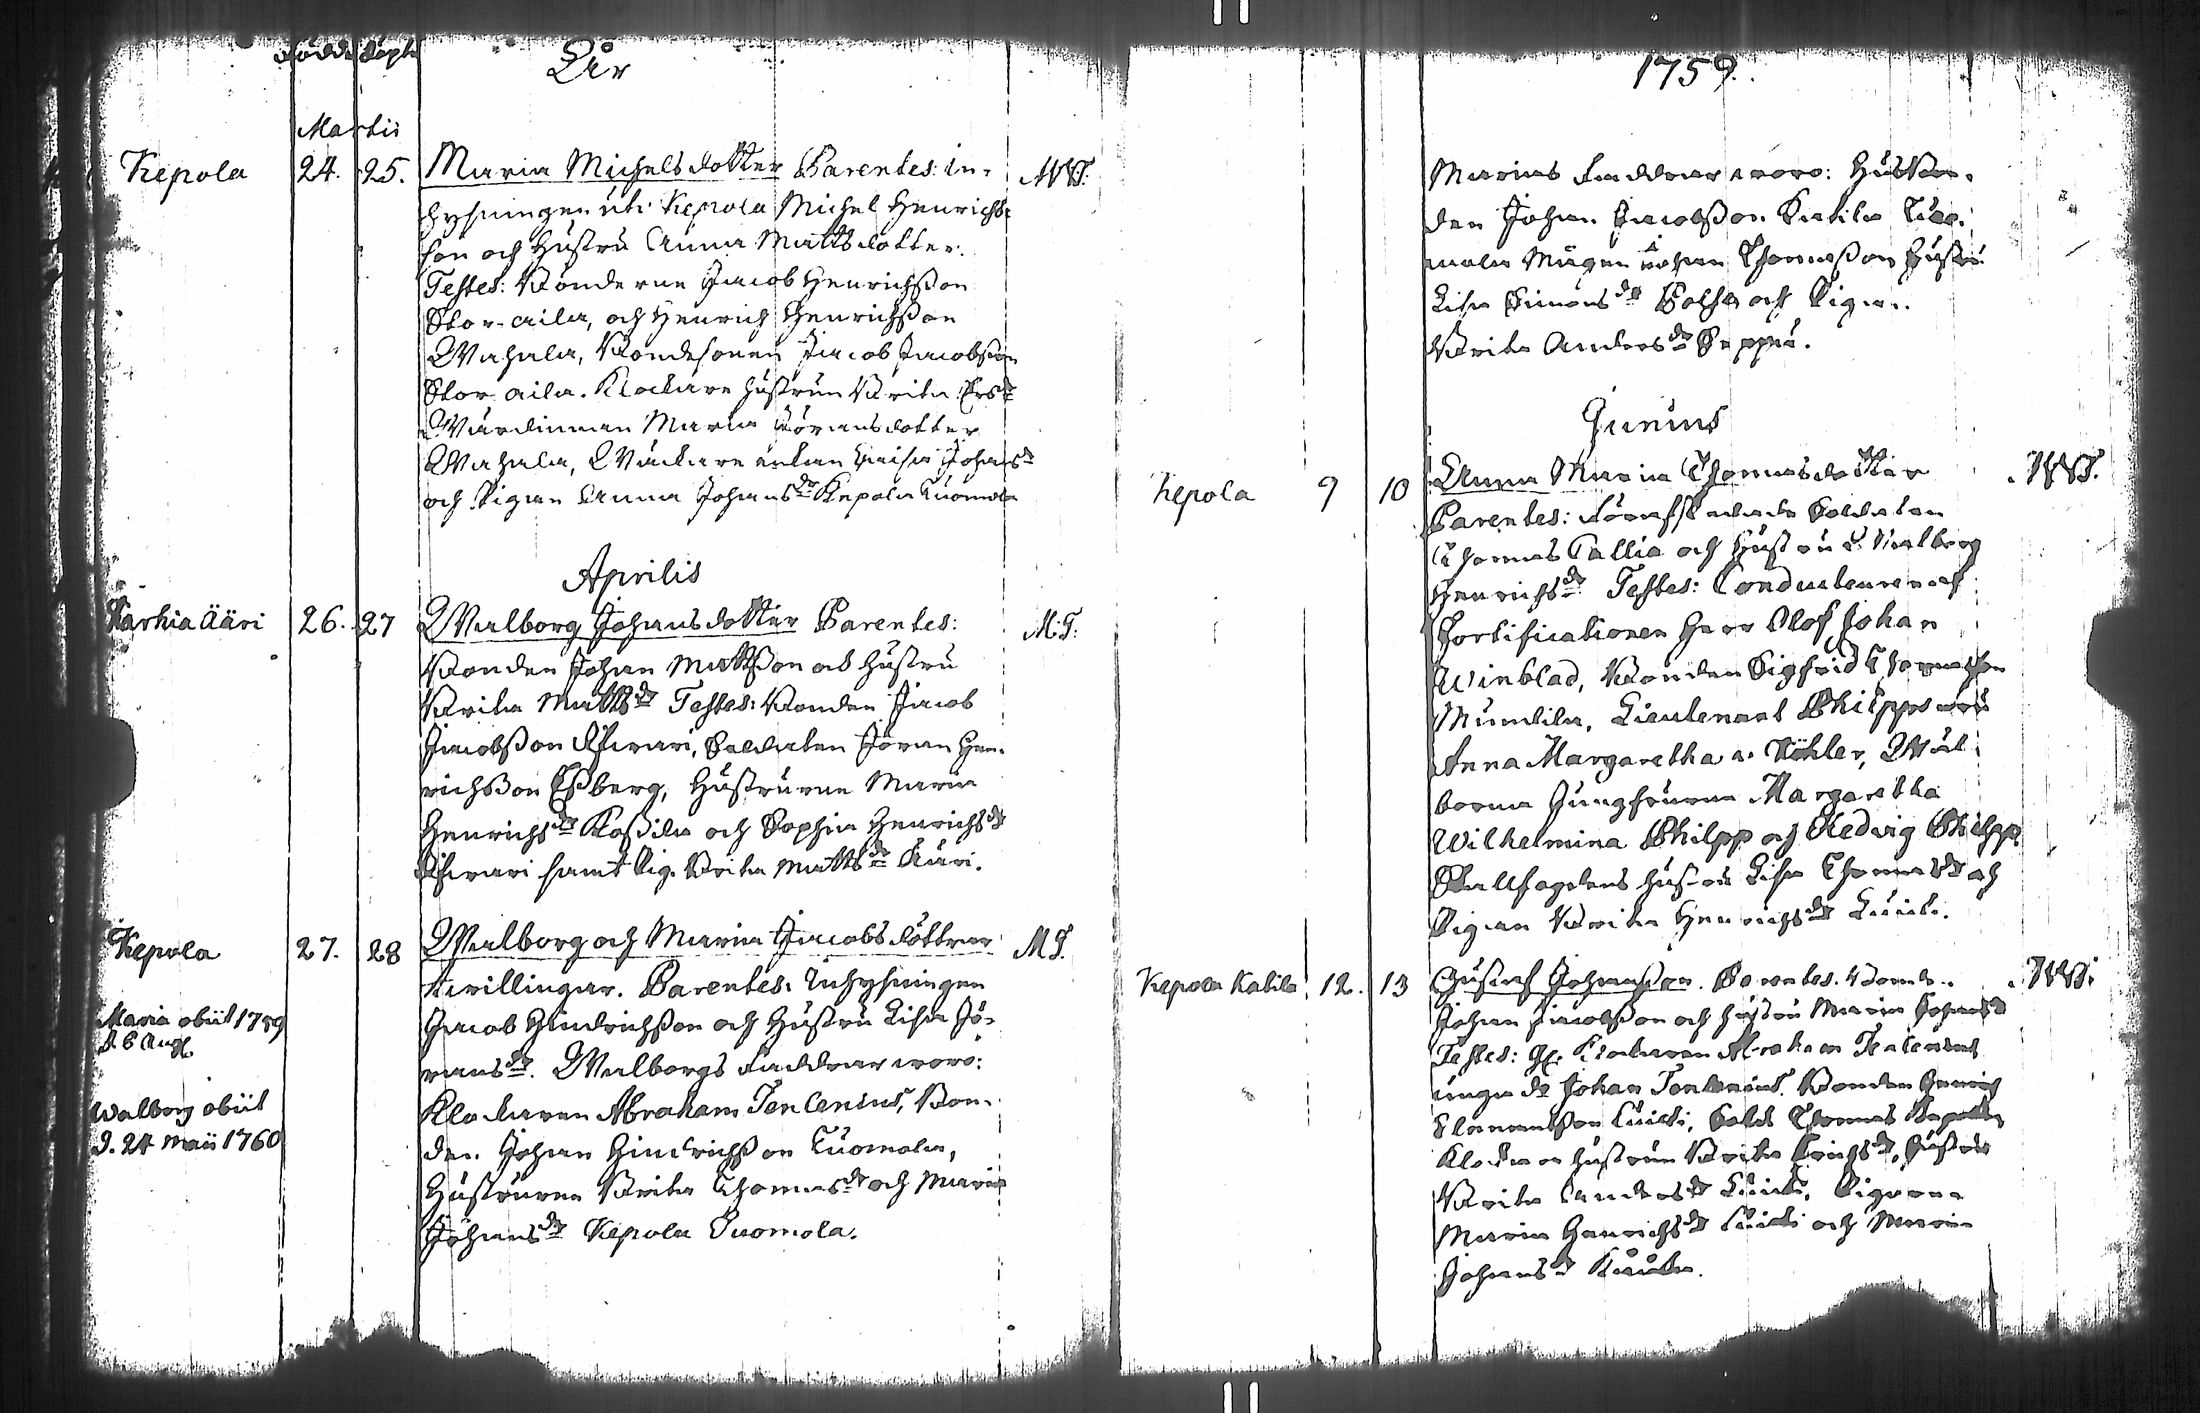 Födde Döpte År
Martii
Kepola 24. 25. Maria Michelsdotter Parentes: in-
hysningen uti Kepola Michel Henrichs-
son och Hustru Anna Mattsdotter.
Testes: Bönderne Jacob Henrichsson
Stor-aila, och Henrich Henrichsson
Wahala, Bondesonen Jacob Jacobsson
Stor aila. Klockare hustrun Brita Ersdr
Wärdinnan Maria Jöransdotter
Wahala, enkan Caisa Johansdr
och Pigan Anna Johansdr Kepola Tuomola
Aprilis
Karhia Ääri 26. 27 Walborg Johansdotter Parentes: M.T.
Bonden Johan Mattsson och hustru
Brita Mattsdr Testes: Bonden Jacob
Jacobsson, Soldaten Jöran Hen-
richsson Essberg, Hustrurne Maria
Henrichsdr och Sophia Henrichsdr
samt Pig. Brita Mattsdr Ääri.
Kepola 27. 28 Walborg och Maria Jacobsdöttrar M.T.
twillingar. Parentes: Inhysningen
Jacob Hindrichsson och Hustru Lisa Jö-
ransdr. Walborgs Faddrar woro:
Klockaren Abraham Tenlenius, Bon-
den Johan Hindrichsson Tuomola,
Hustrurne Brita Thomasdr och Maria
Johansdr Kepola Tuomola.
Maria obiit 1759
d. 6 Aug.
Walborg obiit
d. 24 Maii 1760
1759.
Marias Faddrar woro: Husbon-
den Johan Jacobsson Katila Tuo-
mola Mågen Johan Thomasson Hustru
Lisa Simonsdr och Pigan
Brita Andersdr Seppä.
Junius
Kepola 9 10 Anna Maria Thomasdotter
Parentes: Soldaten
Thomas Tallia och Hustru Walborg
Henrichsdr Testes: Conducteuren af
Fortificationen Herr Olof Johan
Winblad, Bonden Sigfrid Thomasson
Muntila, Lieutenant Philpps fru
Anna Margaretha v. Köhler, Wäl-
borna Jungfrurna Margaretha
Wilhelmina Philpp och Hedvig Philpp
hustru Lisa Thomasdr och
Pigan Brita Henrichsdr
Kepola Katila 12. 13 Gustaf Johansson. Parentes. Bonde
Johan Jacobsson och hustru Maria Johansdr
Testes: Klockaren Abraham Tenlenius
unga Johan Tenlenius. Bonden Henrich
Clemetsson, Sold. Thomas
Klockare hustrun Brita Erichsdr, Hustru
Brita Andersdr, Pigorna
Maria Henrichsdr och Maria
Johansdr